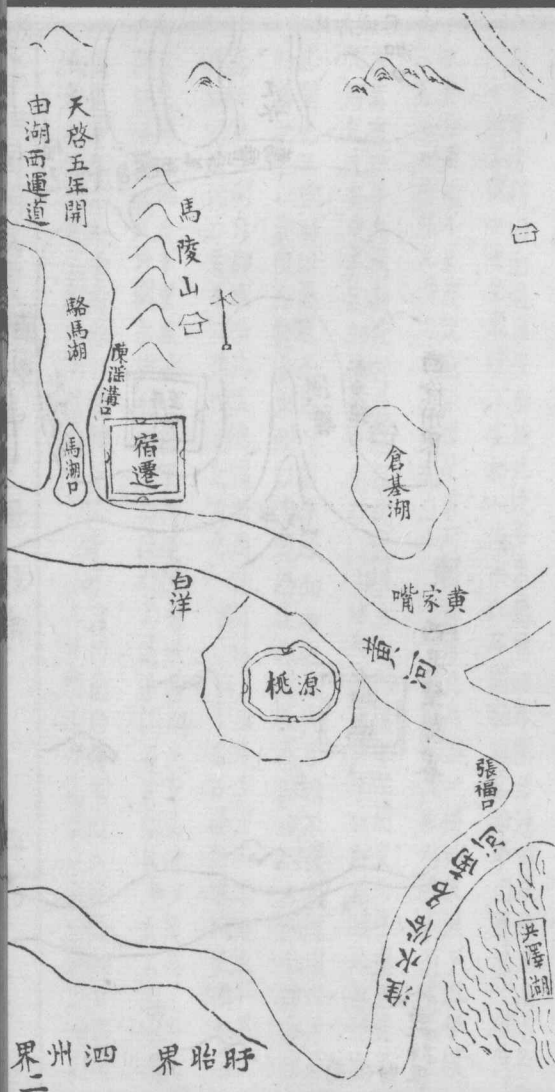 天啓五年開
由湖西運道
馬陵山
駱馬湖
陳滛溝口
馬湖口
宿遷
倉基湖
白洋
黄家嘴
桃源
張福口
淮水俗名南河
共澤湖
盱眙界
泗州界
二